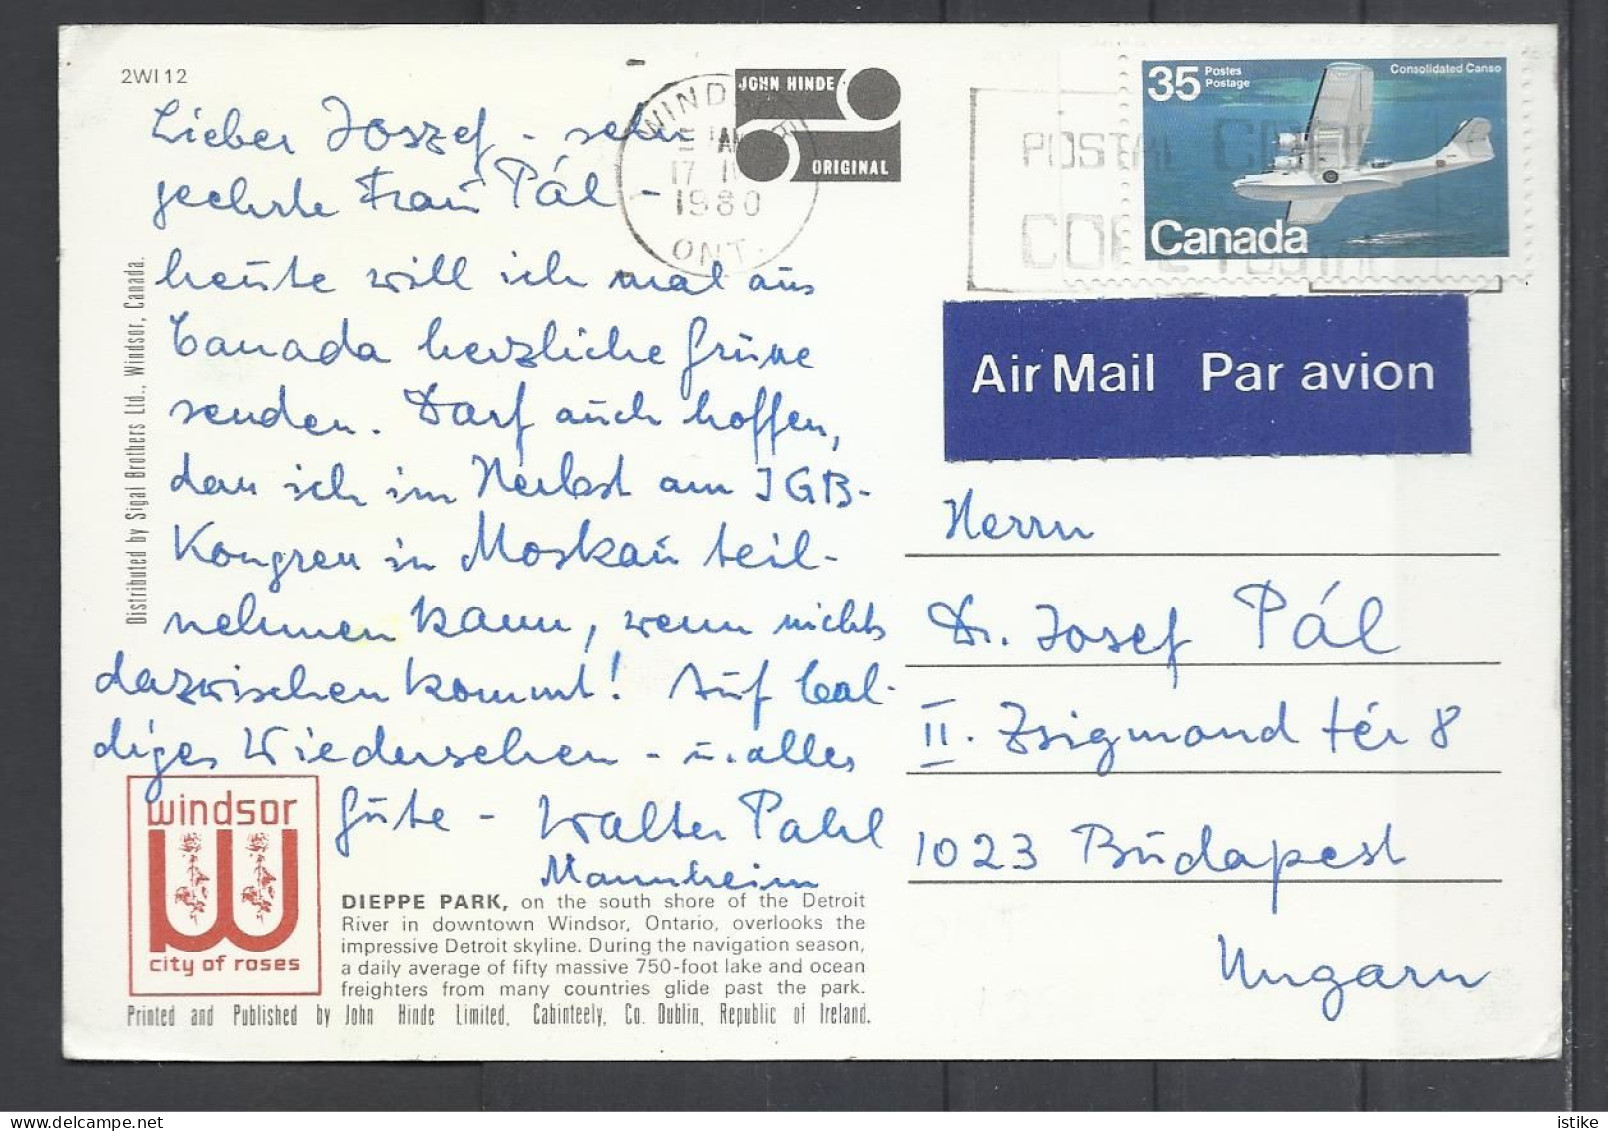 2WI12
Lieber Joszef - sehr
geehrte Frau Pál -
heute will ich mal aus
Canada herzliche Grüsse
senden. Darf auch hoffen,
dass ich im Herbst am IGB-
Kongress in Moskau teil-
nehmen kann, wenn nichts
dazwischen kommt! Auf bal-
diges Wiedersehen - u. alles
Gute - Walter Pahl
Mannheim
Distributed by Sigal Brothers Ltd., Windsor, Canada.
windsor
city of roses
DIEPPE PARK, on the south shore of the Detroit
River in downtown Windsor, Ontario, overlooks the
impressive Detroit skyline. During the navigation season,
a daily average of fifty massive 750-foot lake and ocean
freighters from many countries glide past the park.
Printed and Published by John Hinde Limited, Cabinteely, Co. Dublin, Republic of Ireland.
JOHN HINDE
ORIGINAL
AM
17 IV
1980
ONT.
POSTAL CODE
35 Postes
Postage
Consolidated Canso
Canada
Air Mail Par avion
Herrn
Dr. Josef Pál
II. Zsigmond tér 8
1023 Budapest
Ungarn
delcampe.net
istike